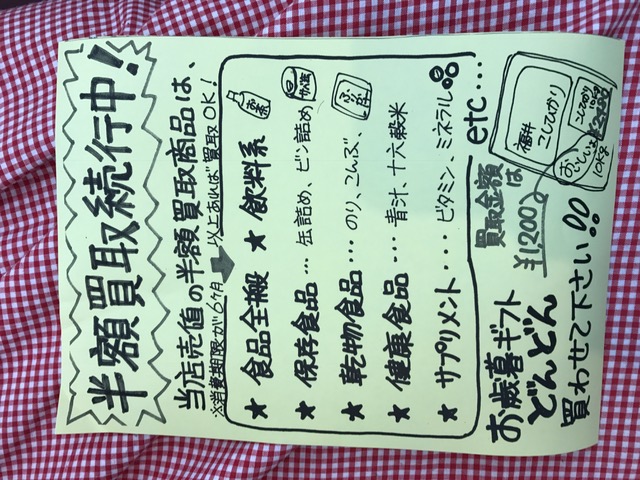 半額買取続行中!!
当店売値の半額買取商品は、
※消費期限が6ヶ月以上あれば買取OK!
★食品全搬 ★飲料系
お茶
★保存食品…缶詰め、ビン詰め、
★乾物食品…のり、こんぶ、
★健康食品…青汁、十六穀米
★サプリメント・・・ビタミン、ミネラル
etc…
福井
こしひかり
こしひかり
10kg
おいしいよ
10kg
買取金額
は
¥1,200
お歳暮ギフト
どんどん
買わせて下さい!!